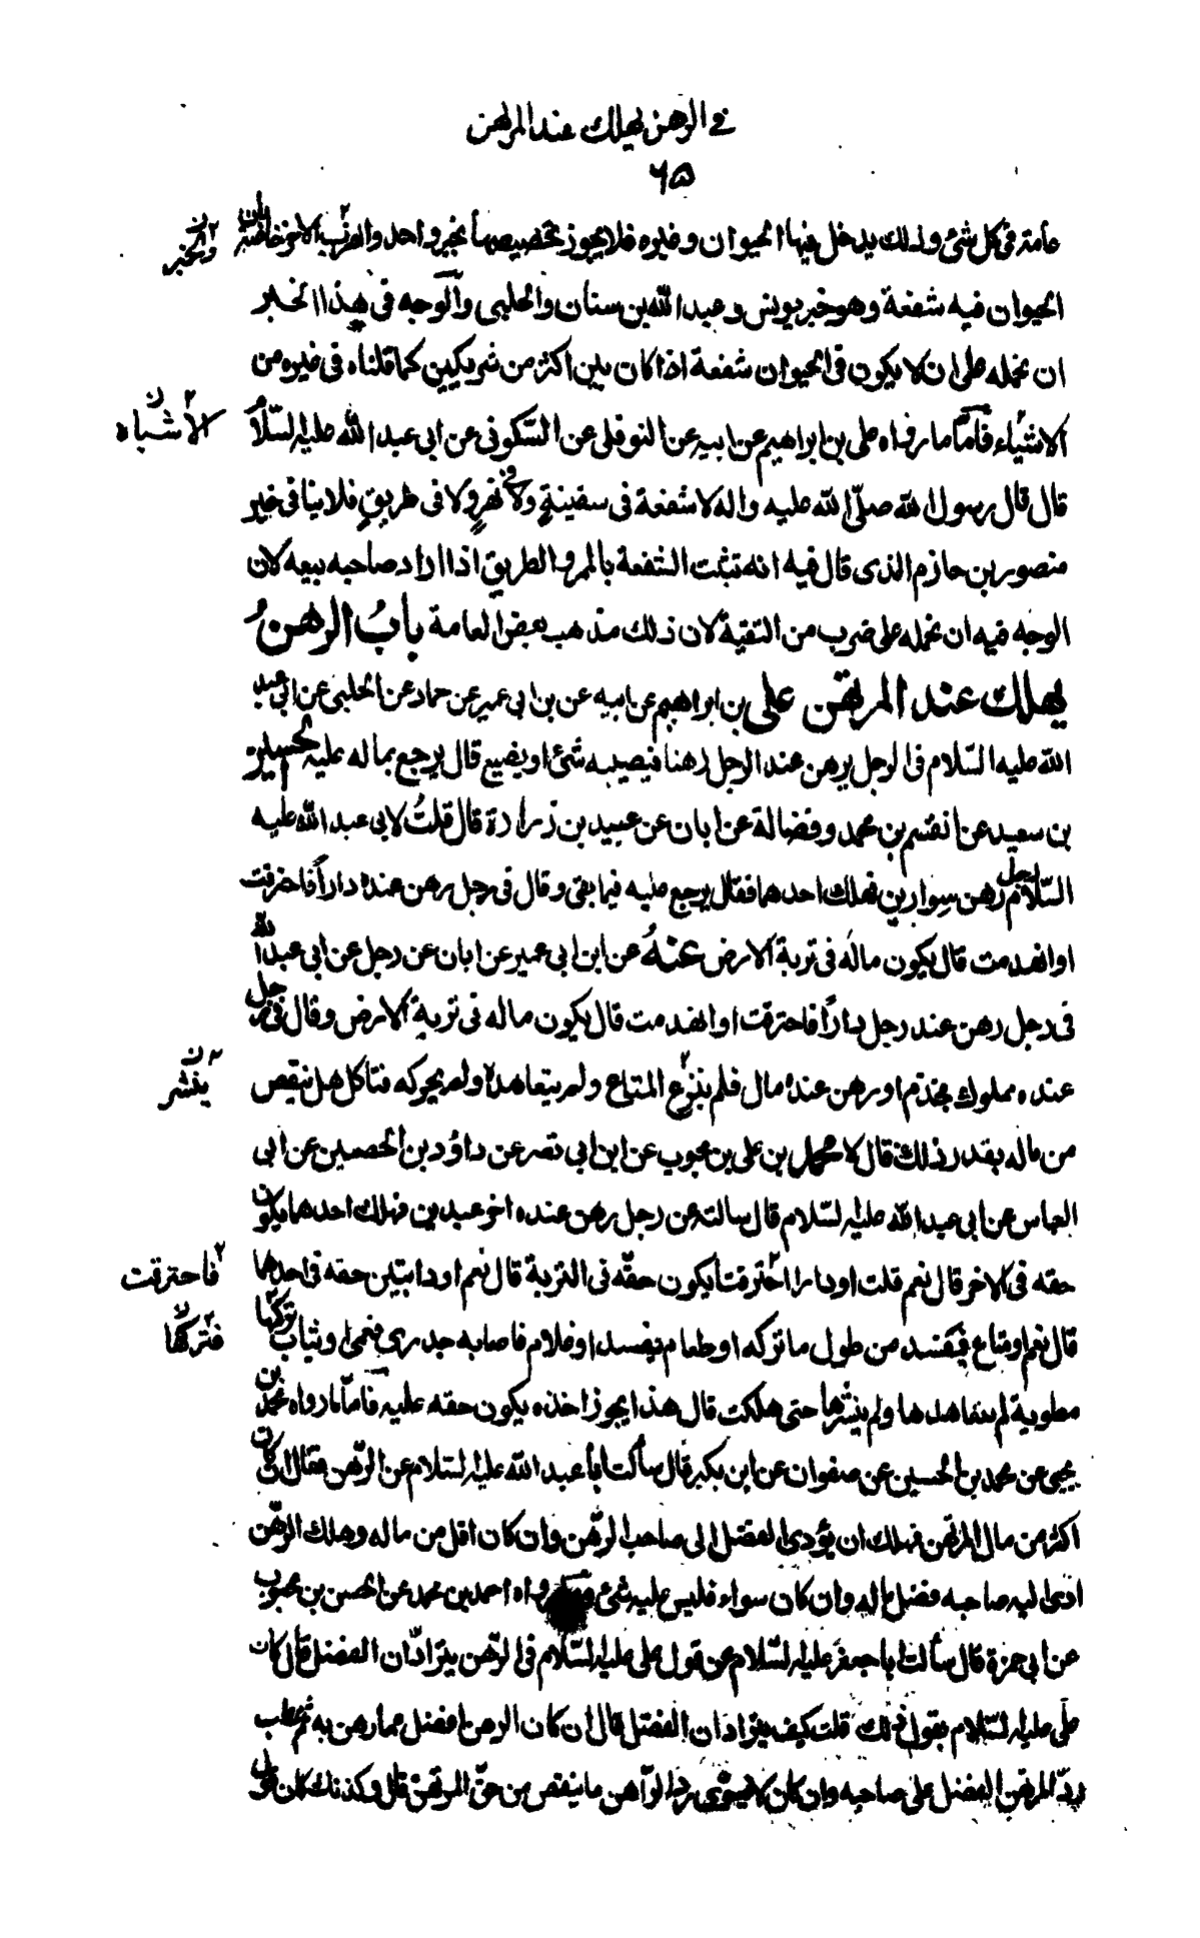 في الرهن يهلك عند المرتهن
٦٥
عامة في كل شئ وذلك يدخل فيها الحيوان وغيره فلا يجوز تخصيصها بخبر واحد والضرب الاخر خاص بان
والخبر ن
الحيوان فيه شفعة وهو خبر يونس وعبد الله بن سنان والحلبي والوجه في هذا الخبر
ان نحمله على ان لا يكون في الحيوان شفعة اذا كان بين اكثر من شريكين كما قلناه في غيره من
الاشياء فأمّا ما رواه علي بن ابراهيم عن ابيه عن النوفلي عن السّكوني عن ابي عبد الله عليه السّلام
الاشباه ن
قال قال رسول الله صلّى الله عليه واله لا شفعة في سفينةٍ ولا في نهرٍ ولا في طريقٍ فلا ينافي خبر
منصور بن حازم الذي قال فيه انه تثبت الشفعة بالممر والطريق اذا اراد صاحبه بيعه لان
الوجه فيه ان نحمله على ضرب من التقية لان ذلك مذهب بعض العامة بابُ الرهنُ
يهلك عند المرتهن علي بن ابراهيم عن ابيه عن بن ابي عمير عن حماد عن الحلبي عن ابي عبد
الله عليه السّلام في الرجل يرهن عند الرجل رهنا فيصيبه شئ او يضيع قال يرجع بماله عليه الحسين
بن سعيد عن القسم بن محمد وفضالة عن ابان عن عبيد بن زرارة قال قلتُ لابي عبد الله عليه
السّلام رجل رهن سوارين فهلك احدهما فقال يرجع عليه فيما بقى وقال في رجل رهن عنده داراً فاحترقت
او انهدمت قال يكون ماله في تربة الارض عنهُ عن ابن ابي عمير عن ابان عن رجل عن ابي عبد الله
في رجل رهن عند رجل داراً فاحترقت او انهدمت قال يكون ماله في تربة الارض وقال في رجل
عنده مملوك يجذم او رهن عنده مال فلم ينزع المتاع ولم يتعاهده ولم يحركه فتاكل هل ينقص
ينشر ن
من ماله بقدر ذلك قال لا محمد بن علي بن محبوب عن ابن ابي نصر عن داؤد بن الحصين عن ابي
العباس عن ابي عبد الله عليه السّلام قال سالته عن رجل رهن عنده اخر عبدين فهلك احدهما يكون
حقه في الاخر قال نعم قلت او دارا احترقت أيكون حقّه في التربة قال نعم او دابتين حقه في احدهما
فاحترقت
قال نعم او متاع فيفسد من طول ما تركه او طعام يفسد او غلام فاصابه جدري فعمي او ثياب تركها
فتركها ن
مطوية لم يتعاهدها ولم ينشرها حتى هلكت قال هذا يجوز اخذه يكون حقه عليه فامّا ما رواه محمد بن
يحيى عن محمد بن الحسين عن صفوان عن ابن بكير قال سألت أبا عبد الله عليه السّلام عن الرّهن فقال ان كان
اكثر من مال المرتهن فهلك ان يؤدي الفضل الى صاحب الرّهن وان كان اقل من ماله وهلك الرهن
ادى اليه صاحبه فضل ماله وان كان سواء فليس عليه شئ رواه احمد بن محمد عن الحسن بن محبوب
عن ابي حمزة قال سألت ابا جعفر عليه السّلام عن قول علي عليه السّلام في الرّهن يترادّان الفضل قال كان
علي عليه السّلام يقول ذلك قلت كيف يترادان الفضل قال ان كان الرهن افضل مما رهن به ثم عطب
ردّ المرتهن الفضل على صاحبه وان كان لا يسوى رد الراهن ما ينقص من حقّ المرتهن قال وكذلك كان قول